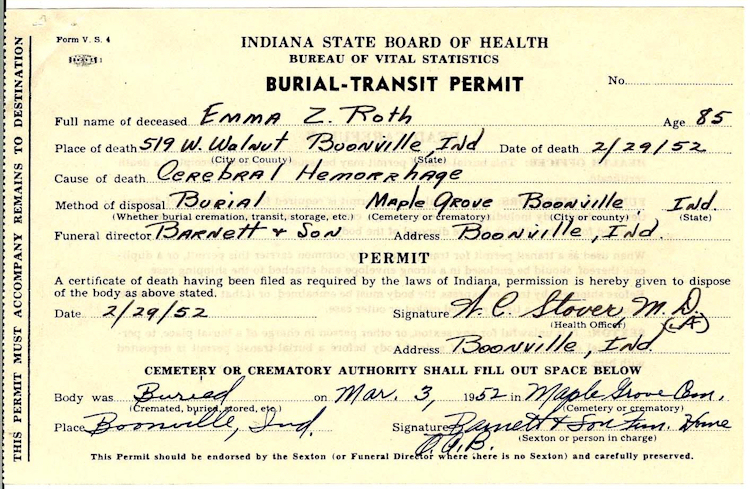 Form V. S. 4
INDIANA STATE BOARD OF HEALTH
BUREAU OF VITAL STATISTICS
BURIAL-TRANSIT PERMIT
No.
Full name of deceased Emma Z. Roth Age 85
Place of death 519 W. Walnut Boonville, Ind Date of death 2/29/52
(City or County) (State)
Cause of death Cerebral Hemorrhage
Method of disposal Burial Maple Grove Boonville, Ind.
(Whether burial cremation, transit, storage, etc.) (Cemetery or crematory) (City or county) (State)
Funeral director Barnett & Son Address Boonville, Ind.
PERMIT
A certificate of death having been filed as required by the laws of Indiana, permission is hereby given to dispose
of the body as above stated.
Date 2/29/52 Signature W. C. Stover, M. D.
(Health Officer)
Address Boonville, Ind
CEMETERY OR CREMATORY AUTHORITY SHALL FILL OUT SPACE BELOW
Body was Buried on Mar. 3, 1952 in Maple Grove Cem.
(Cremated, buried, stored, etc.) (Cemetery or crematory)
Place Boonville, Ind. Signature Barnett & Son Fun. Home
(Sexton or person in charge)
This Permit should be endorsed by the Sexton (or Funeral Director where there is no Sexton) and carefully preserved.
THIS PERMIT MUST ACCOMPANY REMAINS TO DESTINATION